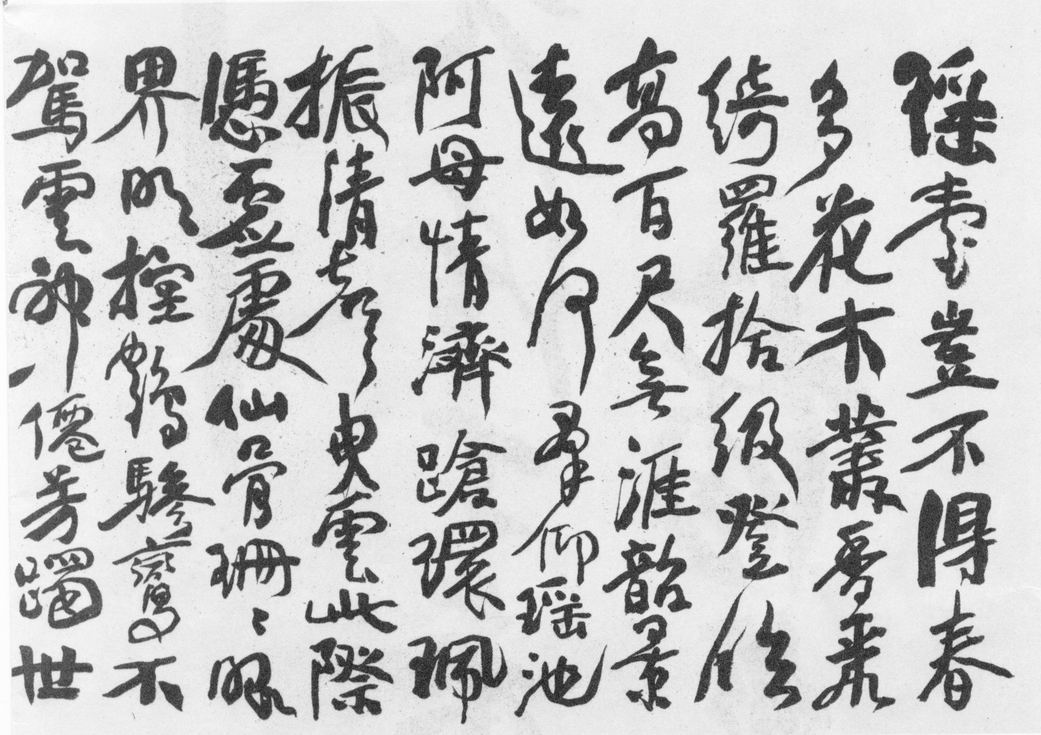 瑶臺豈不得春
多花木叢香乘
綺羅拾級登臨
高百尺無涯韶景
遠如何羣仰瑶池
阿母情濟蹌環珮
振清聲曳雲此際
憑虛處仙骨珊〻眼
界明控鶴驂鸞不
駕雲神僊芳躅世